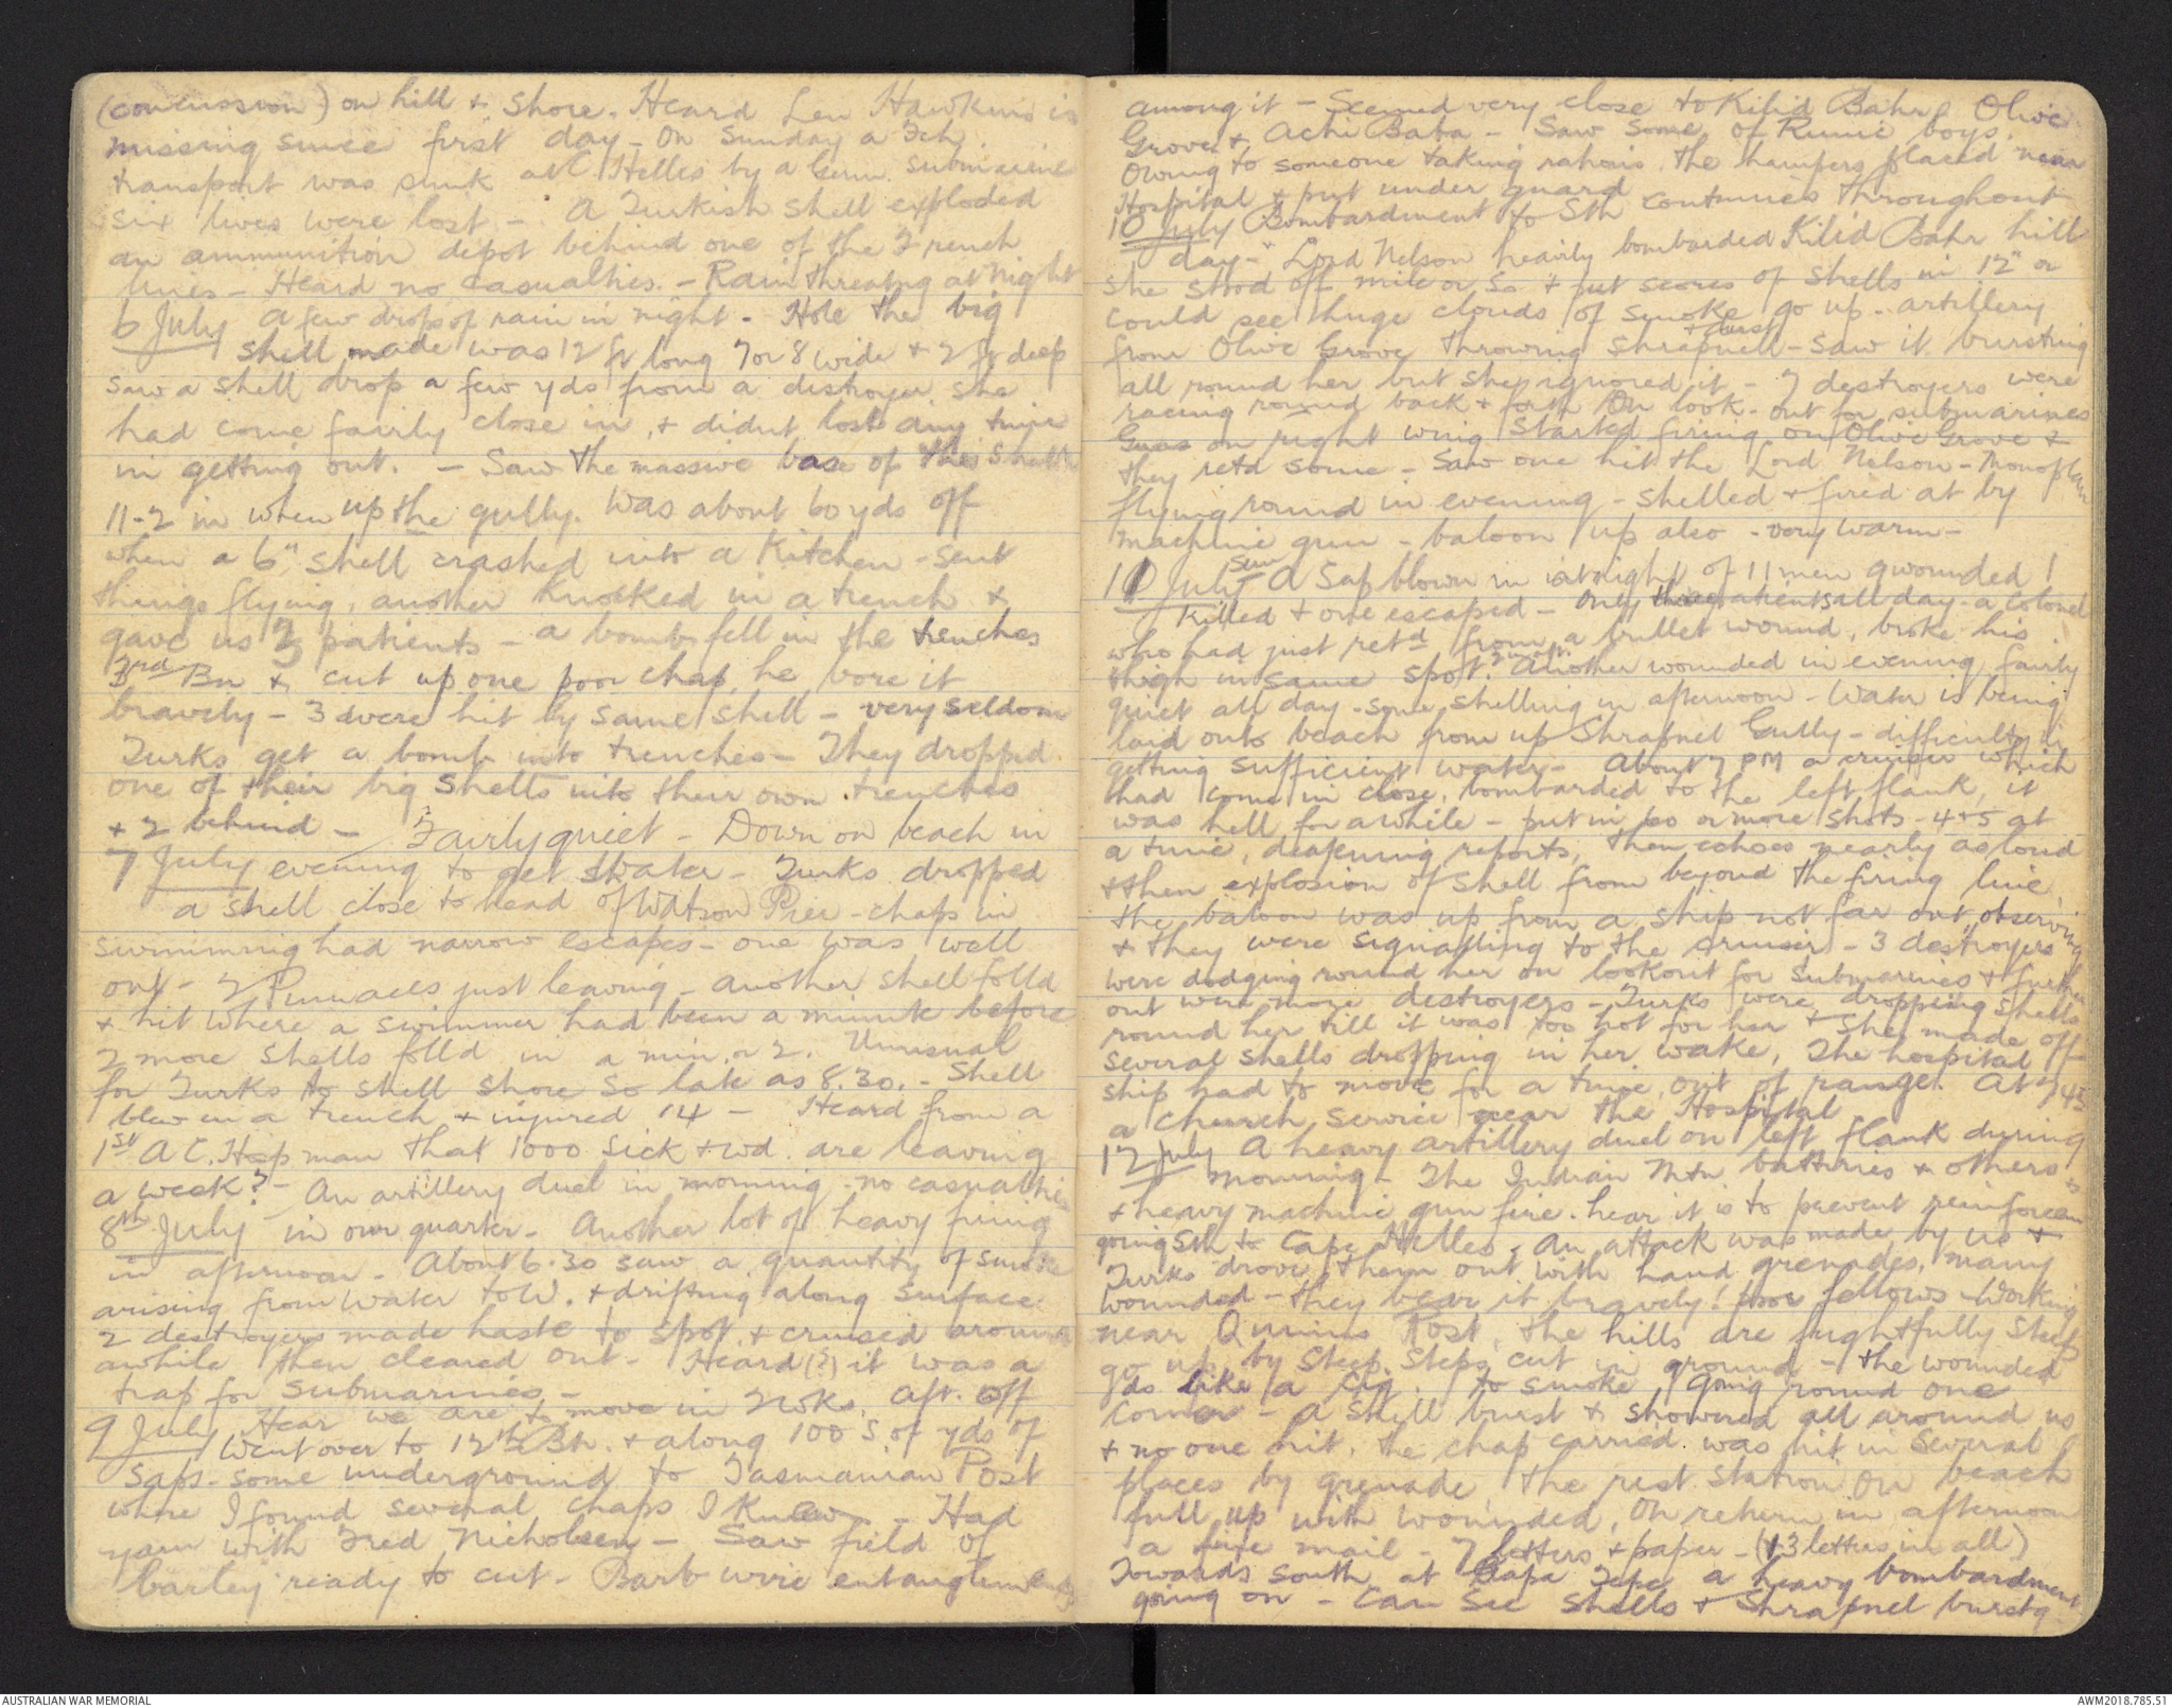 (concussion) on hill & Shore. Heard Len Hawkins is
missing since first day - On Sunday a Fch.
transport was sunk at C. Helles by a Germ. submarine
six lives were lost - A Turkish shell exploded
an ammunition depot behind one of the French
lines - Heard no casualties. - Rain threatng at night
6 July A few drops of rain in night. Hole the big
shell made was 12 ft long 7 or 8 wide & 2 ft deep
saw a shell drop a few yds from a destroyer she
had come fairly close in, & didnt lost any time
in getting out. - Saw the massive base of this shell
11-2 in when up the gully. Was about 60 yds off
when a 6" shell crashed into a Kitchen - sent
things flying, another knocked in a trench &
gave us 3 patients - a bomb fell in the trenches
3rd Bn & cut up one poor chap, he bore it
bravely - 3 were hit by same shell - very seldom
Turks get a bomb into trenches - They droppd
one of their big shells into their own trenches
& 2 behind - Fairly quiet - Down on beach in
7 July evening to get water - Turks dropped
a shell close to head of Watson Pier - chaps in
swimming had narrow escapes - one was well
out - 2 Pinnaces just leaving - another shell folld
& hit where a swimmer had been a minute before
2 more shells folld in a min. or 2. Unusual
for Turks to shell shore so late as 8.30. - Shell
blew in a trench & injured 14 - Heard from a
1st A C. Hosp man that 1000 sick & wd. are leaving
a week? - An artillery duel in morning - no casualties
8th July in our quarter - Another lot of heavy firing
in afternoon - About 6.30 saw a quantity of smoke
arising from water to W. & drifting along surface
2 destroyers made haste to spot & cruised around
awhile then cleared out - Heard (?) it was a
trap for submarines -
9 July Hear we are to move in 2 wks. Aft. off
Went over to 12th Bn. & along 100s of yds of
saps - some underground to Tasmanian Post
where I found several chaps I knew - Had
yarn with Fred Nicholson - Saw field of
barley ready to cut - Barb wire entanglements
among it - Seemed very close to Kilid Bahr, Olive
Grove & Achi Baba - Saw some of Runic boys.
Owing to someone taking rations the hampers placed near
Hospital & put under guard
10 July Bombardment to Sth continues throughout
day - "Lord Nelson heavily bombarded Kilid Bahr hill
she stood off mile or so & put scores of shells in 12" or
could see huge clouds of smoke & dust go up - artillery
from Olive Grove throwing shrapnell - saw it bursting
all round her but she ignored it - 7 destroyers were
racing round back & forth on look-out for submarines
Guns on right wing started firing on Olive Grove &
they retd some - Saw one hit the Lord Nelson - Monoplane
flying round in evening - shelled & fired at by
machine gun - baloon up also - very warm -
11 July Sun A Sap blown in at night of 11 men 9 wounded 1
killed & one escaped - Only three patients all day - a Colonel
who had just retd from a bullet wound, broke his
thigh in same spot. Another wounded in evening, fairly
quiet all day - some shelling in afternoon - Water is being
laid onto beach from up Shrapnel Gully - difficulty in
getting sufficient water - About 7 PM a cruiser which
had come in close, bombarded to the left flank, it
was hell for awhile - put in 60 or more shots - 4 & 5 at
a time, deafening reports, then echoes nearly as loud
& then explosion of shell from beyond the firing line
the baloon was up from a ship not far out, observing
& they were signalling to the cruiser - 3 destroyers
were dodging round her on lookout for submarines & further
out were more destroyers - Turks were dropping shells
round her till it was too hot for her & she made off
several shells dropping in her wake, The hospital
ship had to move for a time out of range. At 7.45
a Church Service near the Hospital
12 July A heavy artillery duel on left flank during
morning - The Indian Mtn batteries & others
& heavy machine gun fire. hear it is to prevent reinforcem
going Sth to Cape Helles - An attack was made by us &
Turks drove them out with hand grenades, many
wounded - they bear it bravely! poor fellows - Working
near Quinns Post, the hills are frightfully steep
go up by steep steps cut in ground - the wounded
yds like a cig. to smoke, Going round one
corner - a shell burst & showered all around us
& no one hit. the chap carried was hit in several
places by grenade, the rest station on beach
full up with wounded, On return in afternoon
a fine mail - 7 letters & paper - (13 letters in all)
Towards south at Gapa Tepe a heavy bombardment
going on - Can see shells & Shrapnel burstg
AUSTRALIAN WAR MEMORIAL
AWM2018.785.51